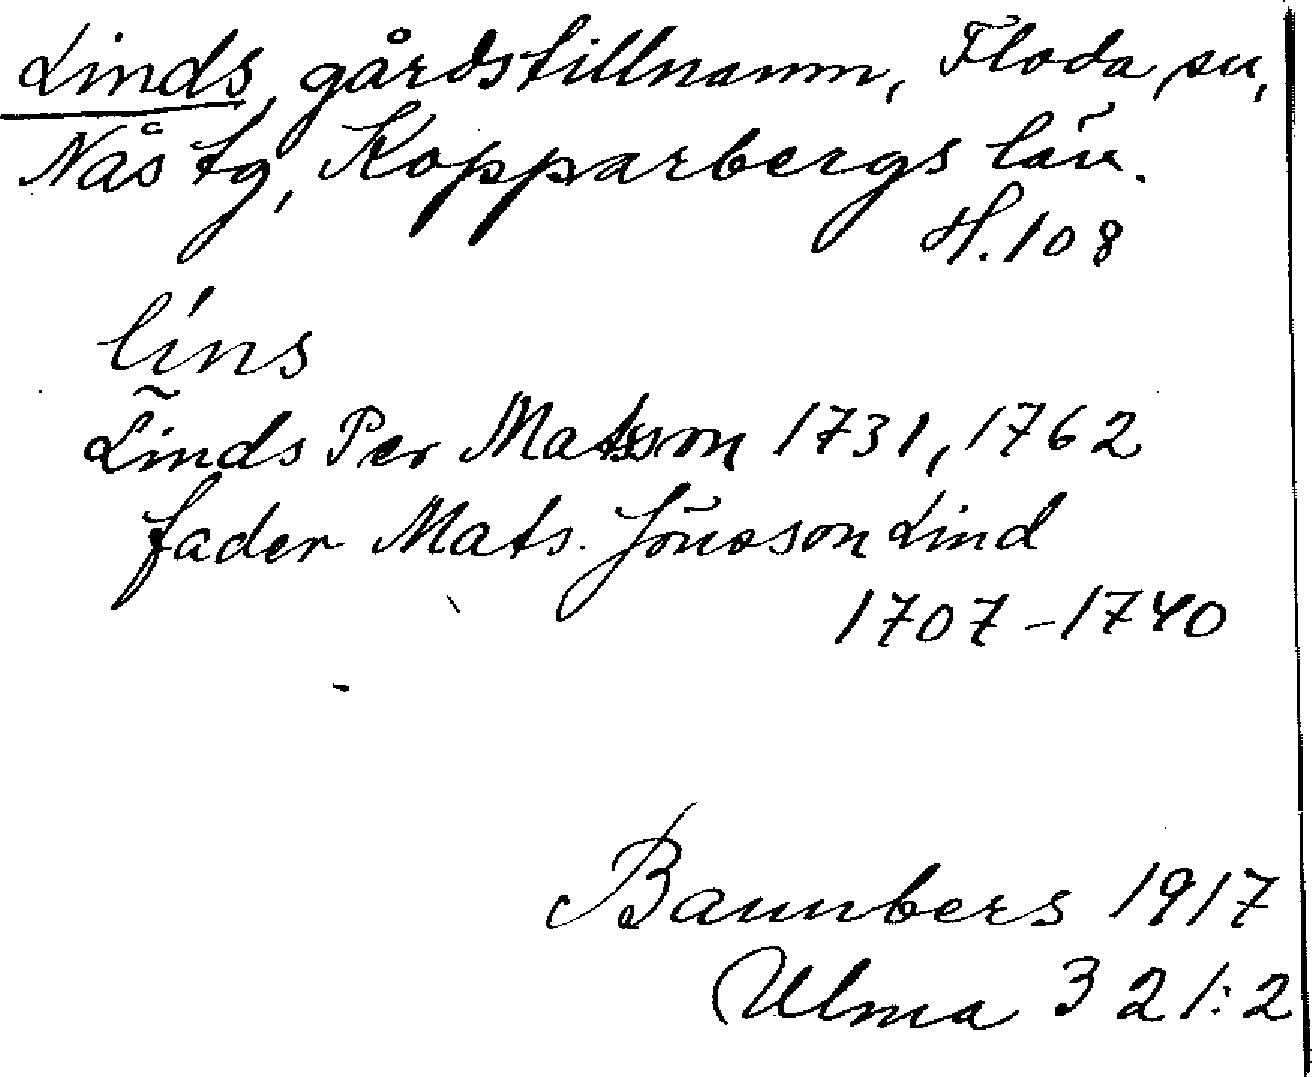 Linds, gårdstillnamn, Floda sn,
Nås tg, Kopparbergs län.
H. 108
líns
Linds Per Matsson 1731, 1762
fader Mats Jönsson Lind
1707-1740
Bannbers 1917
Ulma 321:2